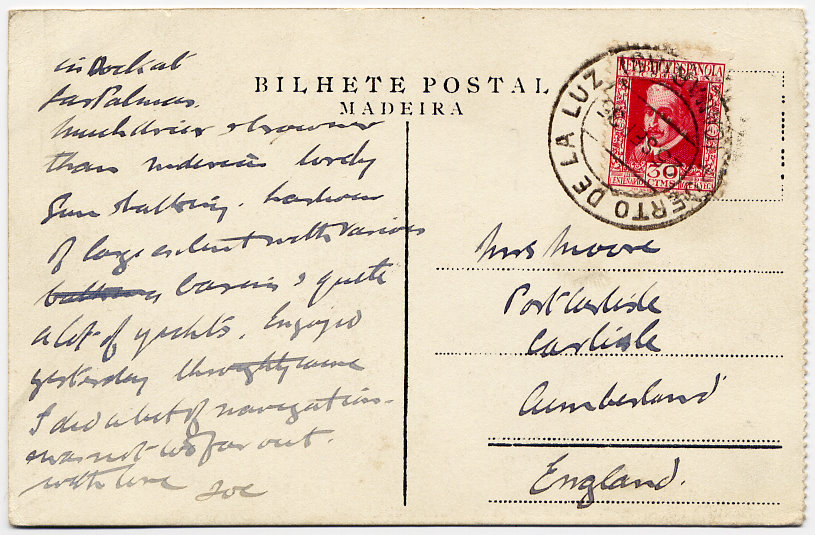 in Dock at
Las Palmas.
Much drier & browner
than Madeira lovely
Sun & bathing. harbour
of large extent with various
basins & quite
a lot of yachts. Enjoyed
yesterday
I did a bit of navigation.
was not too far out.
with love Joe
BILHETE POSTAL
MADEIRA
REPUBLICA ESPAÑOLA
30
CTMS
PUERTO DE LA LUZ
Mrs Moore
Port Carlisle
Carlisle
Cumberland
England.